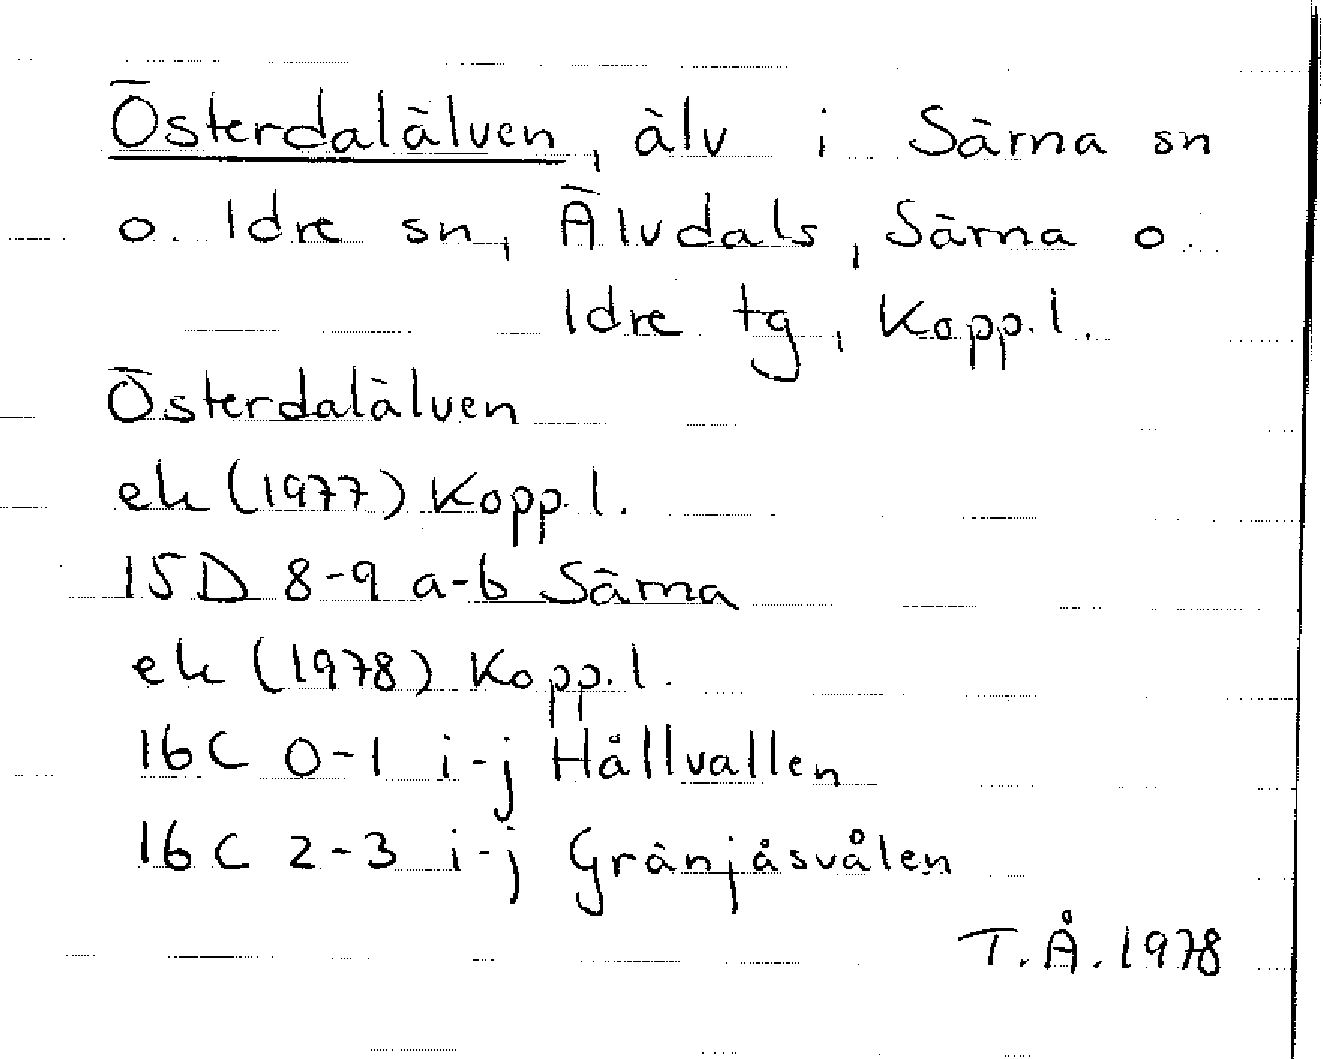 Österdalälven, älv i Särna sn
o. Idre sn, Älvdals, Särna o.
Idre tg, Kopp.l.
Österdalälven
ek (1977) Kopp.l.
15D 8-9 a-b Särna
ek (1978) Kopp.l.
16C 0-1 i-j Hållvallen
16C 2-3 i-j Gränjåsvålen
T.Å. 1978